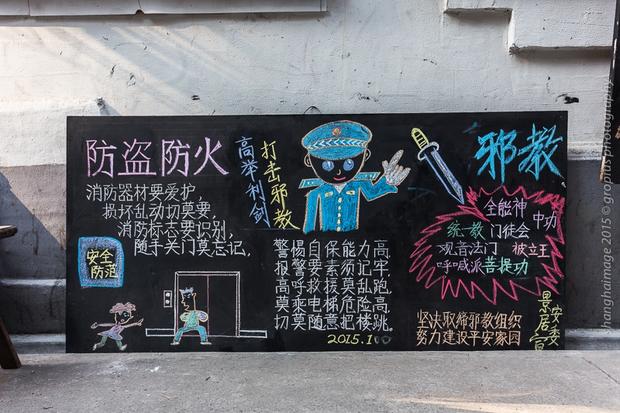 防盗防火
消防器材要爱护,
损坏乱动切莫要,
消防标志要识别,
随手关门莫忘记,
安全
防范
高举利剑
打击邪教
警惕自保能力高
报警要素须记牢
高呼救援莫乱跑
莫乘电梯危险高
切莫随意把楼跳.
2015.1
邪教
全能神 中功
统一教 门徒会
观音法门 被立王
呼喊派 菩提功
坚决取缔邪教组织
努力建设平安家园
安委
居
宣
shanghaiimage 2015 © gropius photography